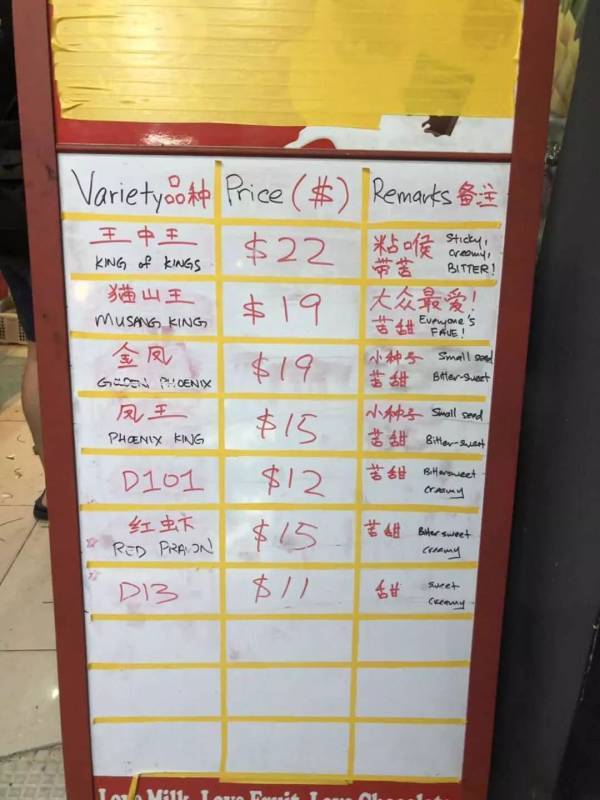 Variety品种 Price ($) Remarks 备注
王中王
KING of KINGS
$22
粘喉 Sticky,
creamy,
带苦 BITTER!
猫山王
MUSANG KING
$19
大众最爱!
苦甜 Everyone's
FAVE!
金凤
GOLDEN PHOENIX
$19
小种子 Small seed
苦甜 Bitter-sweet
凤王
PHOENIX KING
$15
小种子 Small seed
苦甜 Bitter-sweet
D101
$12
苦甜 Bittersweet
creamy
红虾
RED PRAWN
$15
苦甜 Bitter sweet
creamy
D13
$11
甜 sweet
creamy
Love Milk, Love Fruit, Love Chocolate